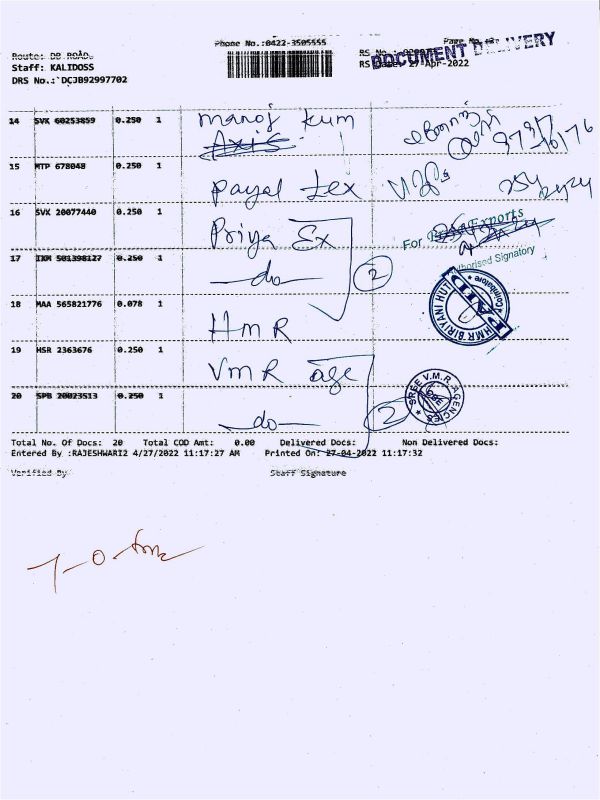 Phone No.:0422-3505555
Route: DB ROAD.
Staff: KALIDOSS
DRS No.: DCJB92997702
DOCUMENT DELIVERY
27-Apr-2022
14 SVK 60253859 0.250 1 manoj kum
Axis
15 MTP 678048 0.250 1 Payal Tex
16 SVK 20077440 0.250 1 Priya Ex
For Exports
17 IXM 501398127 0.250 1 -do-
2
Authorised Signatory
18 MAA 565821776 0.078 1 HMR
HMR BIRIYANI HUT
PAID
Coimbatore
19 HSR 2363676 0.250 1 VMR age
20 SPB 20023513 0.250 1 -do-
2
SREE V.M.R. AGENCIES
CBE
Total No. Of Docs: 20 Total COD Amt: 0.00 Delivered Docs: Non Delivered Docs:
Entered By :RAJESHWARI2 4/27/2022 11:17:27 AM Printed On: 27-04-2022 11:17:32
Verified By Staff Signature